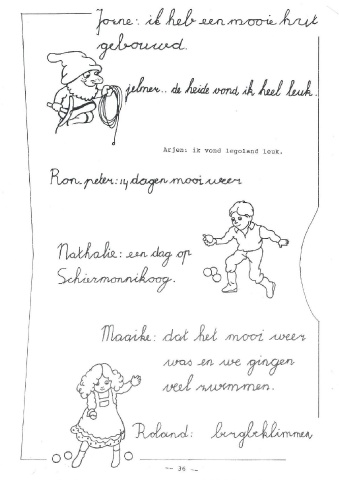 Jorne: ik heb een mooie hut
gebouwd.
jelmer.. de heide vond ik heel leuk.
Arjen: ik vond legoland leuk.
Ron. peter: 14 dagen mooi weer
Nathalie: een dag op
Schiermonnikoog.
Maaike: dat het mooi weer
was en we gingen
veel zwemmen.
Roland: bergbeklimmen
— 36 —